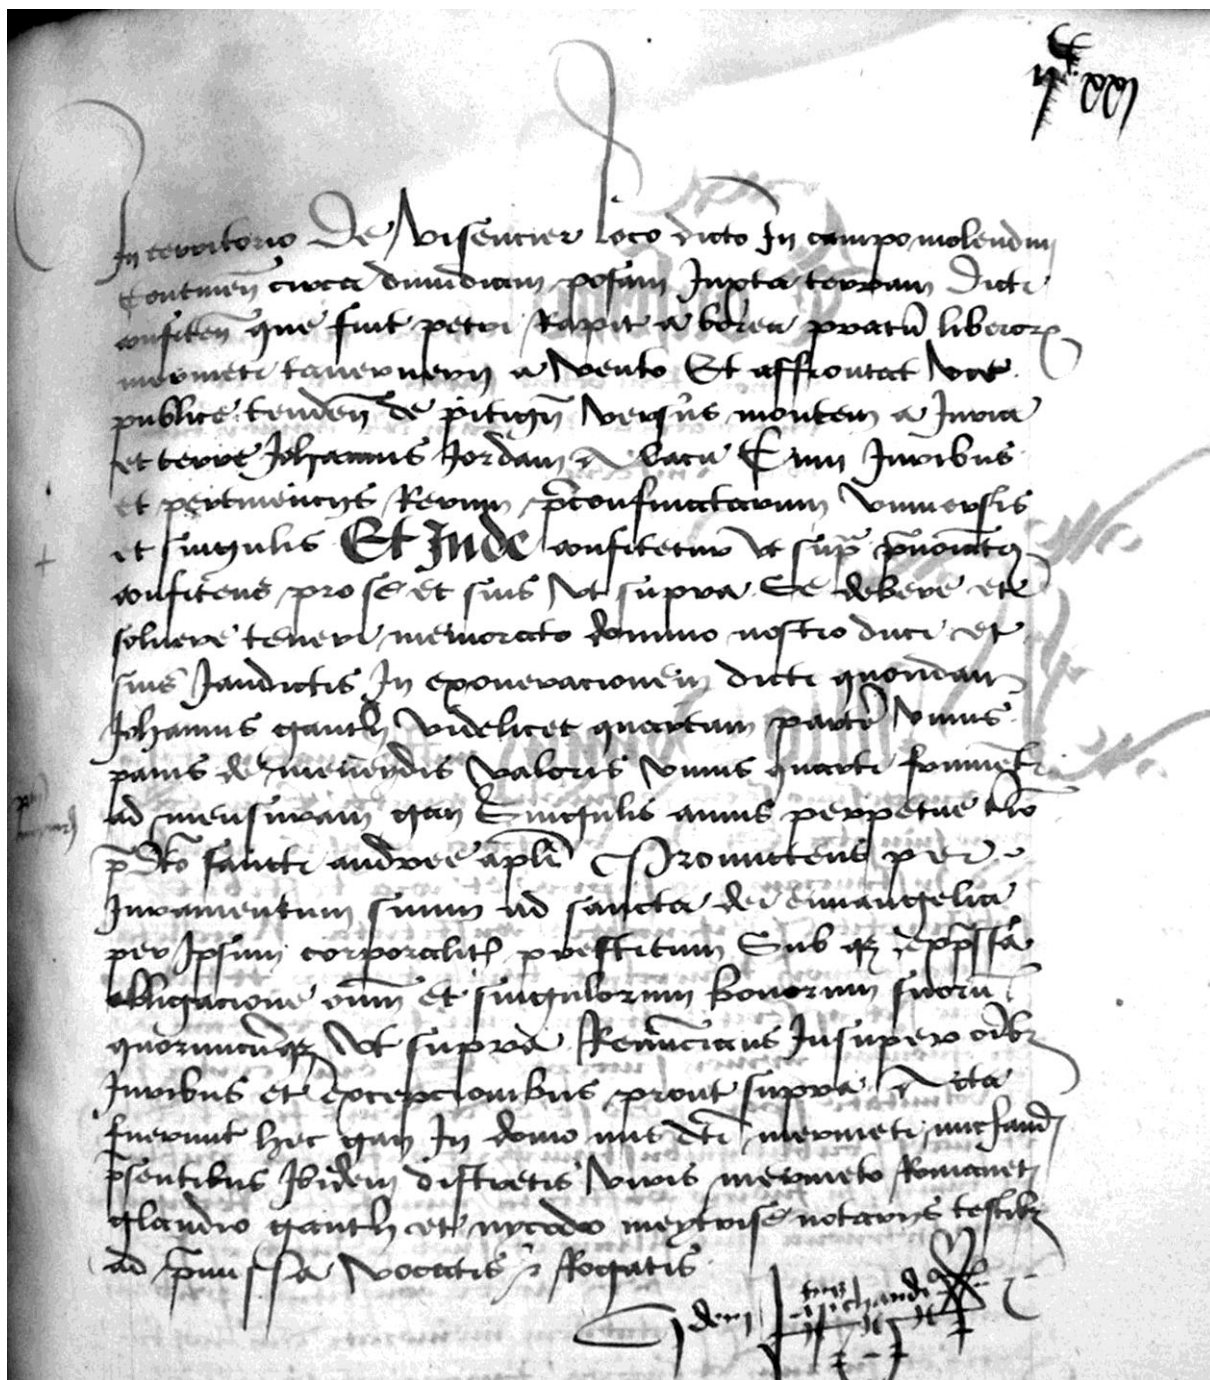 In territorio de Visencier loco dicto In campo molendini
Continen̄ circa dimidiam posam Iuxta terram dicti
confiten̄ que fuit petri Rapit a borea pratū liberor̄
mermeti tavernerij a vento Et affrontat vie
publice tenden̄ de versus montem a Iuria
et terre Johannis Jordam a lacu Cum Iuribus
et pertinencijs Rerum p̄confinatarum universis
et singulis Et Inde confitetur ut sup̄ p̄noīatꝯ
confitens pro se et suis ut supra Se debere et
solvere teneri memorato domino nostro duci et
suis Iamdictis In exoneracionem dicti quondam
Johannis ganth videlicet quartam partē unius
panis de valoris unius quarti frumēti
ad mensuram gay Singulis annis perpetue
p̄dc̄o sancti andree apl̄i Promittens per
Iuramentum suum ad sancta dei euuangelia
per Ipsum corporalit̄ prestitum Sub qꝫ exp̄ssa
obligacione oīm et singulorum bonorum suorū
quorumcūqꝫ ut supra Renūcians Insuper oībꝫ
Iuribus et excepcionibus prout supra Acta
fuerunt hec gay In domo mis dc̄i mermeti michaud
p̄sentibus Ibidem discretis viris mermeto Romanet
glaudio ganth et nycodo meytrise notarijs testibꝫ
ad p̄missa vocatis et Rogatis
Idem michaudi